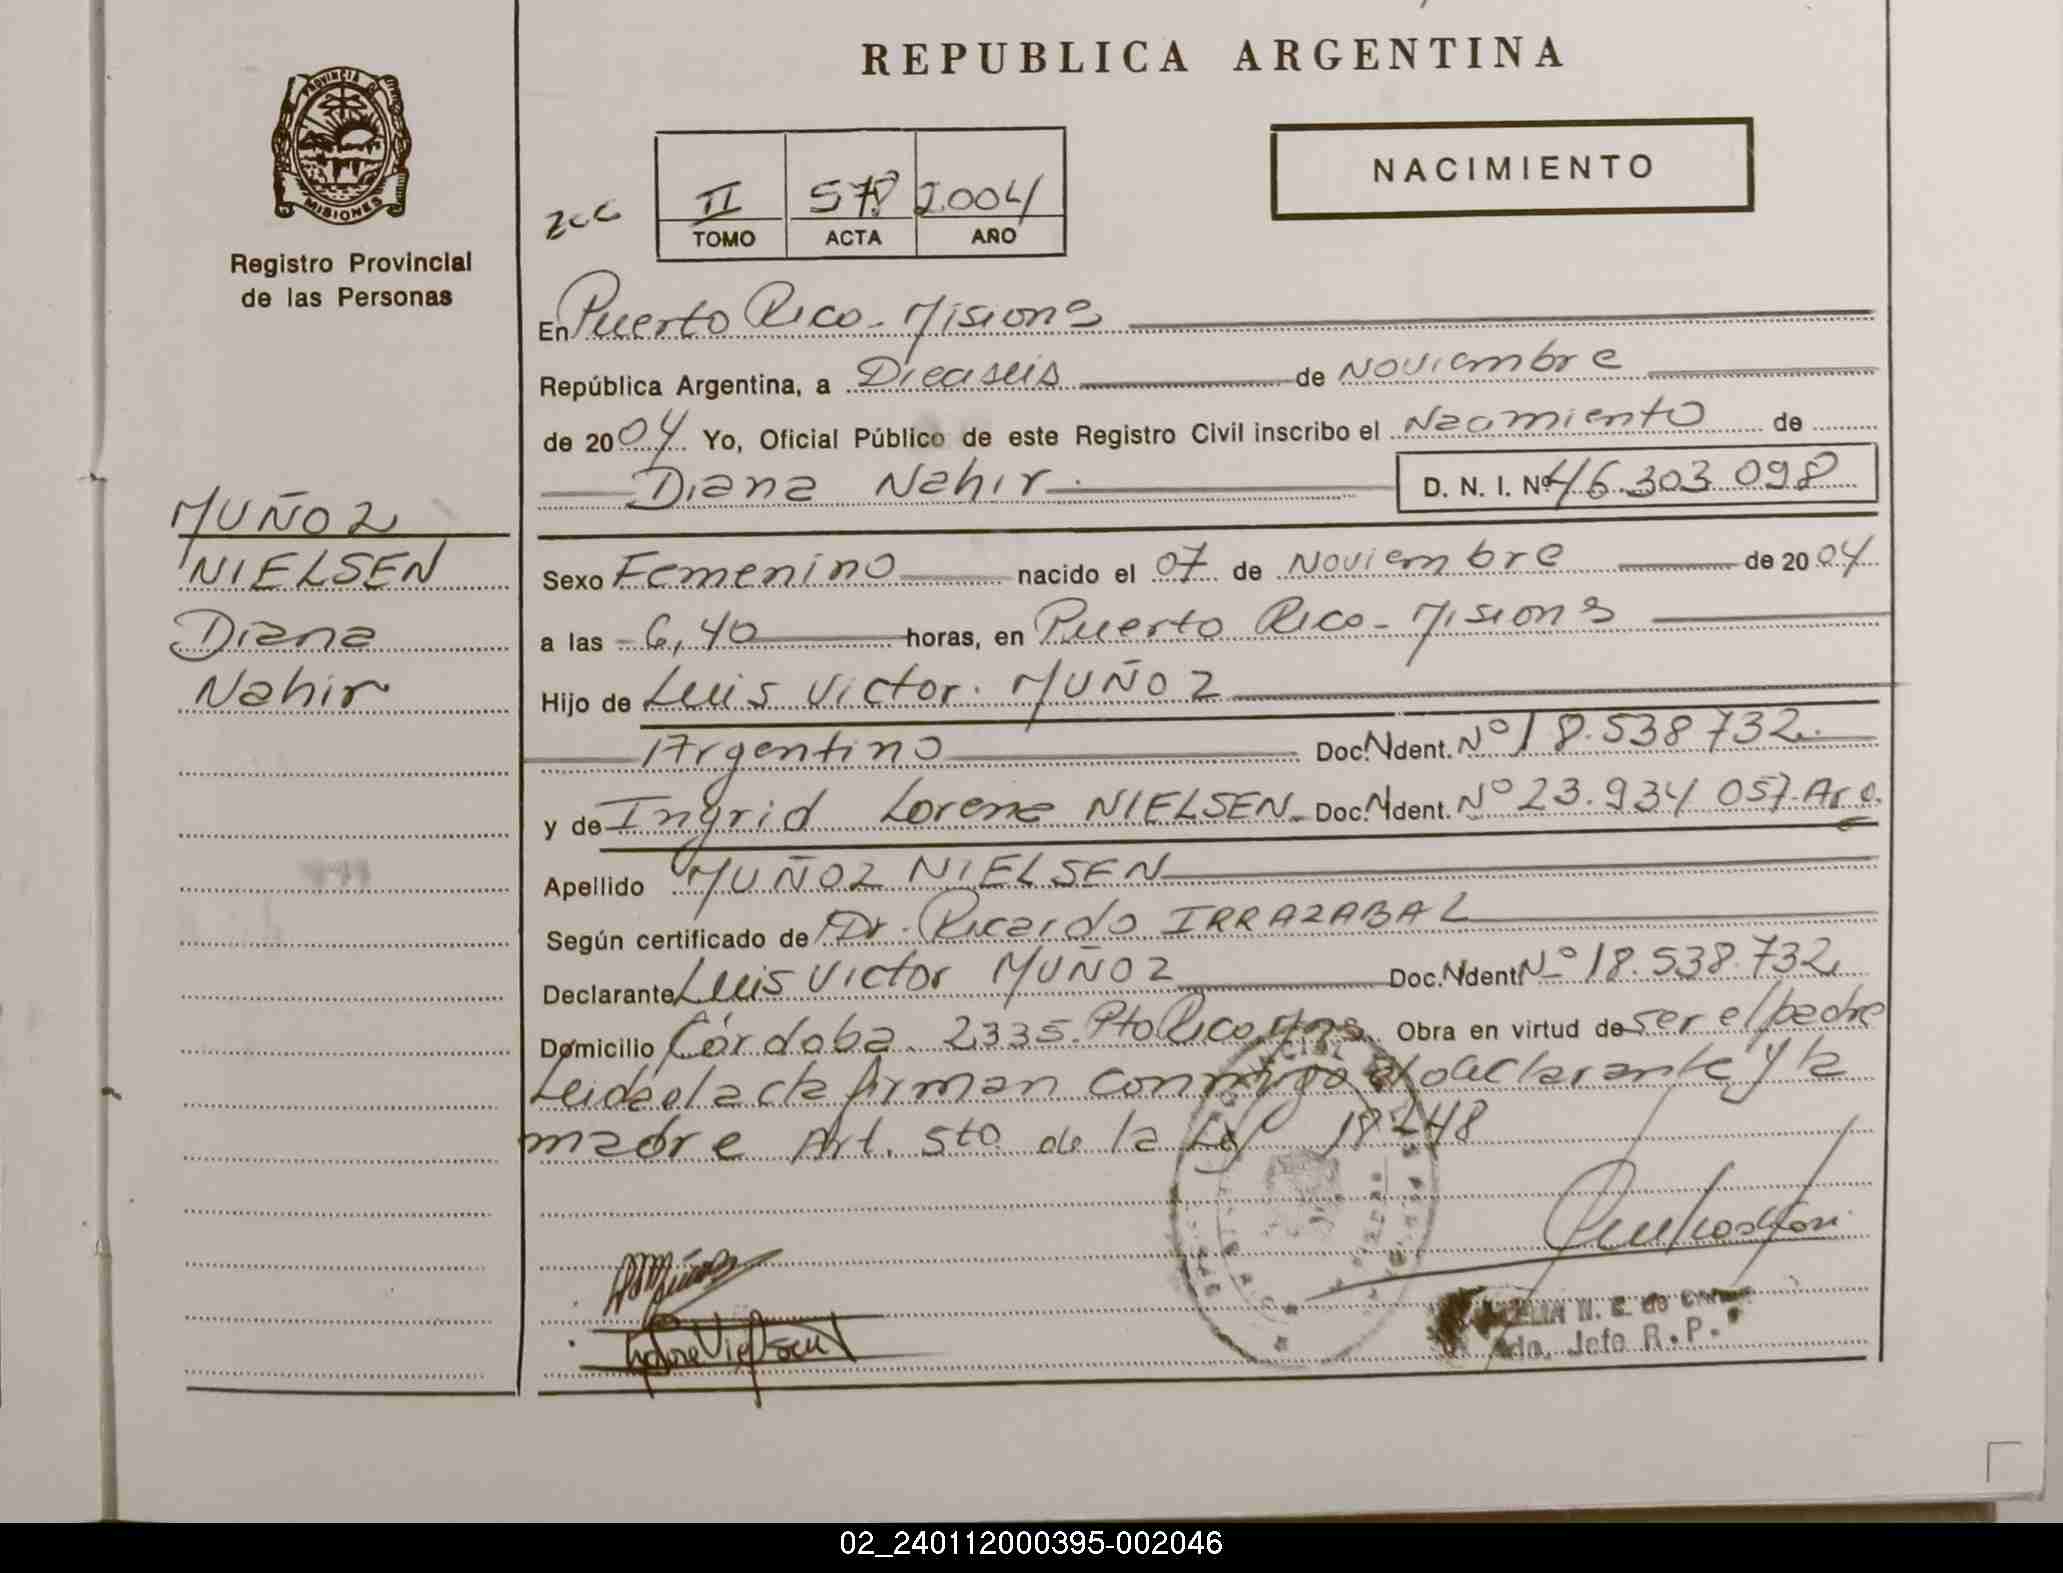 REPUBLICA ARGENTINA
NACIMIENTO
PROVINCIA DE
MISIONES
Registro Provincial
de las Personas
II 578 2.004
TOMO ACTA AÑO
En Puerto Rico - Misiones
República Argentina, a Dieciseis de Noviembre
de 2004 Yo, Oficial Público de este Registro Civil inscribo el Nacimiento de
Diana Nahir D. N. I. Nº 46.303.098
MUÑOZ
NIELSEN
Diana
Nahir
Sexo Femenino nacido el 07 de Noviembre de 2004
a las 6,40 horas, en Puerto Rico - Misiones
Hijo de Luis Victor MUÑOZ
Argentino Doc. Ident. Nº 18.538.732
y de Ingrid Lorena NIELSEN Doc. Ident. Nº 23.934.057 Arg.
Apellido MUÑOZ NIELSEN
Según certificado de Dr. Ricardo IRRAZABAL
Declarante Luis Victor MUÑOZ Doc. Ident. Nº 18.538.732
Domicilio Córdoba 2335. Pto Rico. Mns. Obra en virtud de ser el padre
Leida el acta firman conmigo el declarante y la
madre Art. 5to de la Ley 18248
N. E. de
Jefe R.P.
02_240112000395-002046